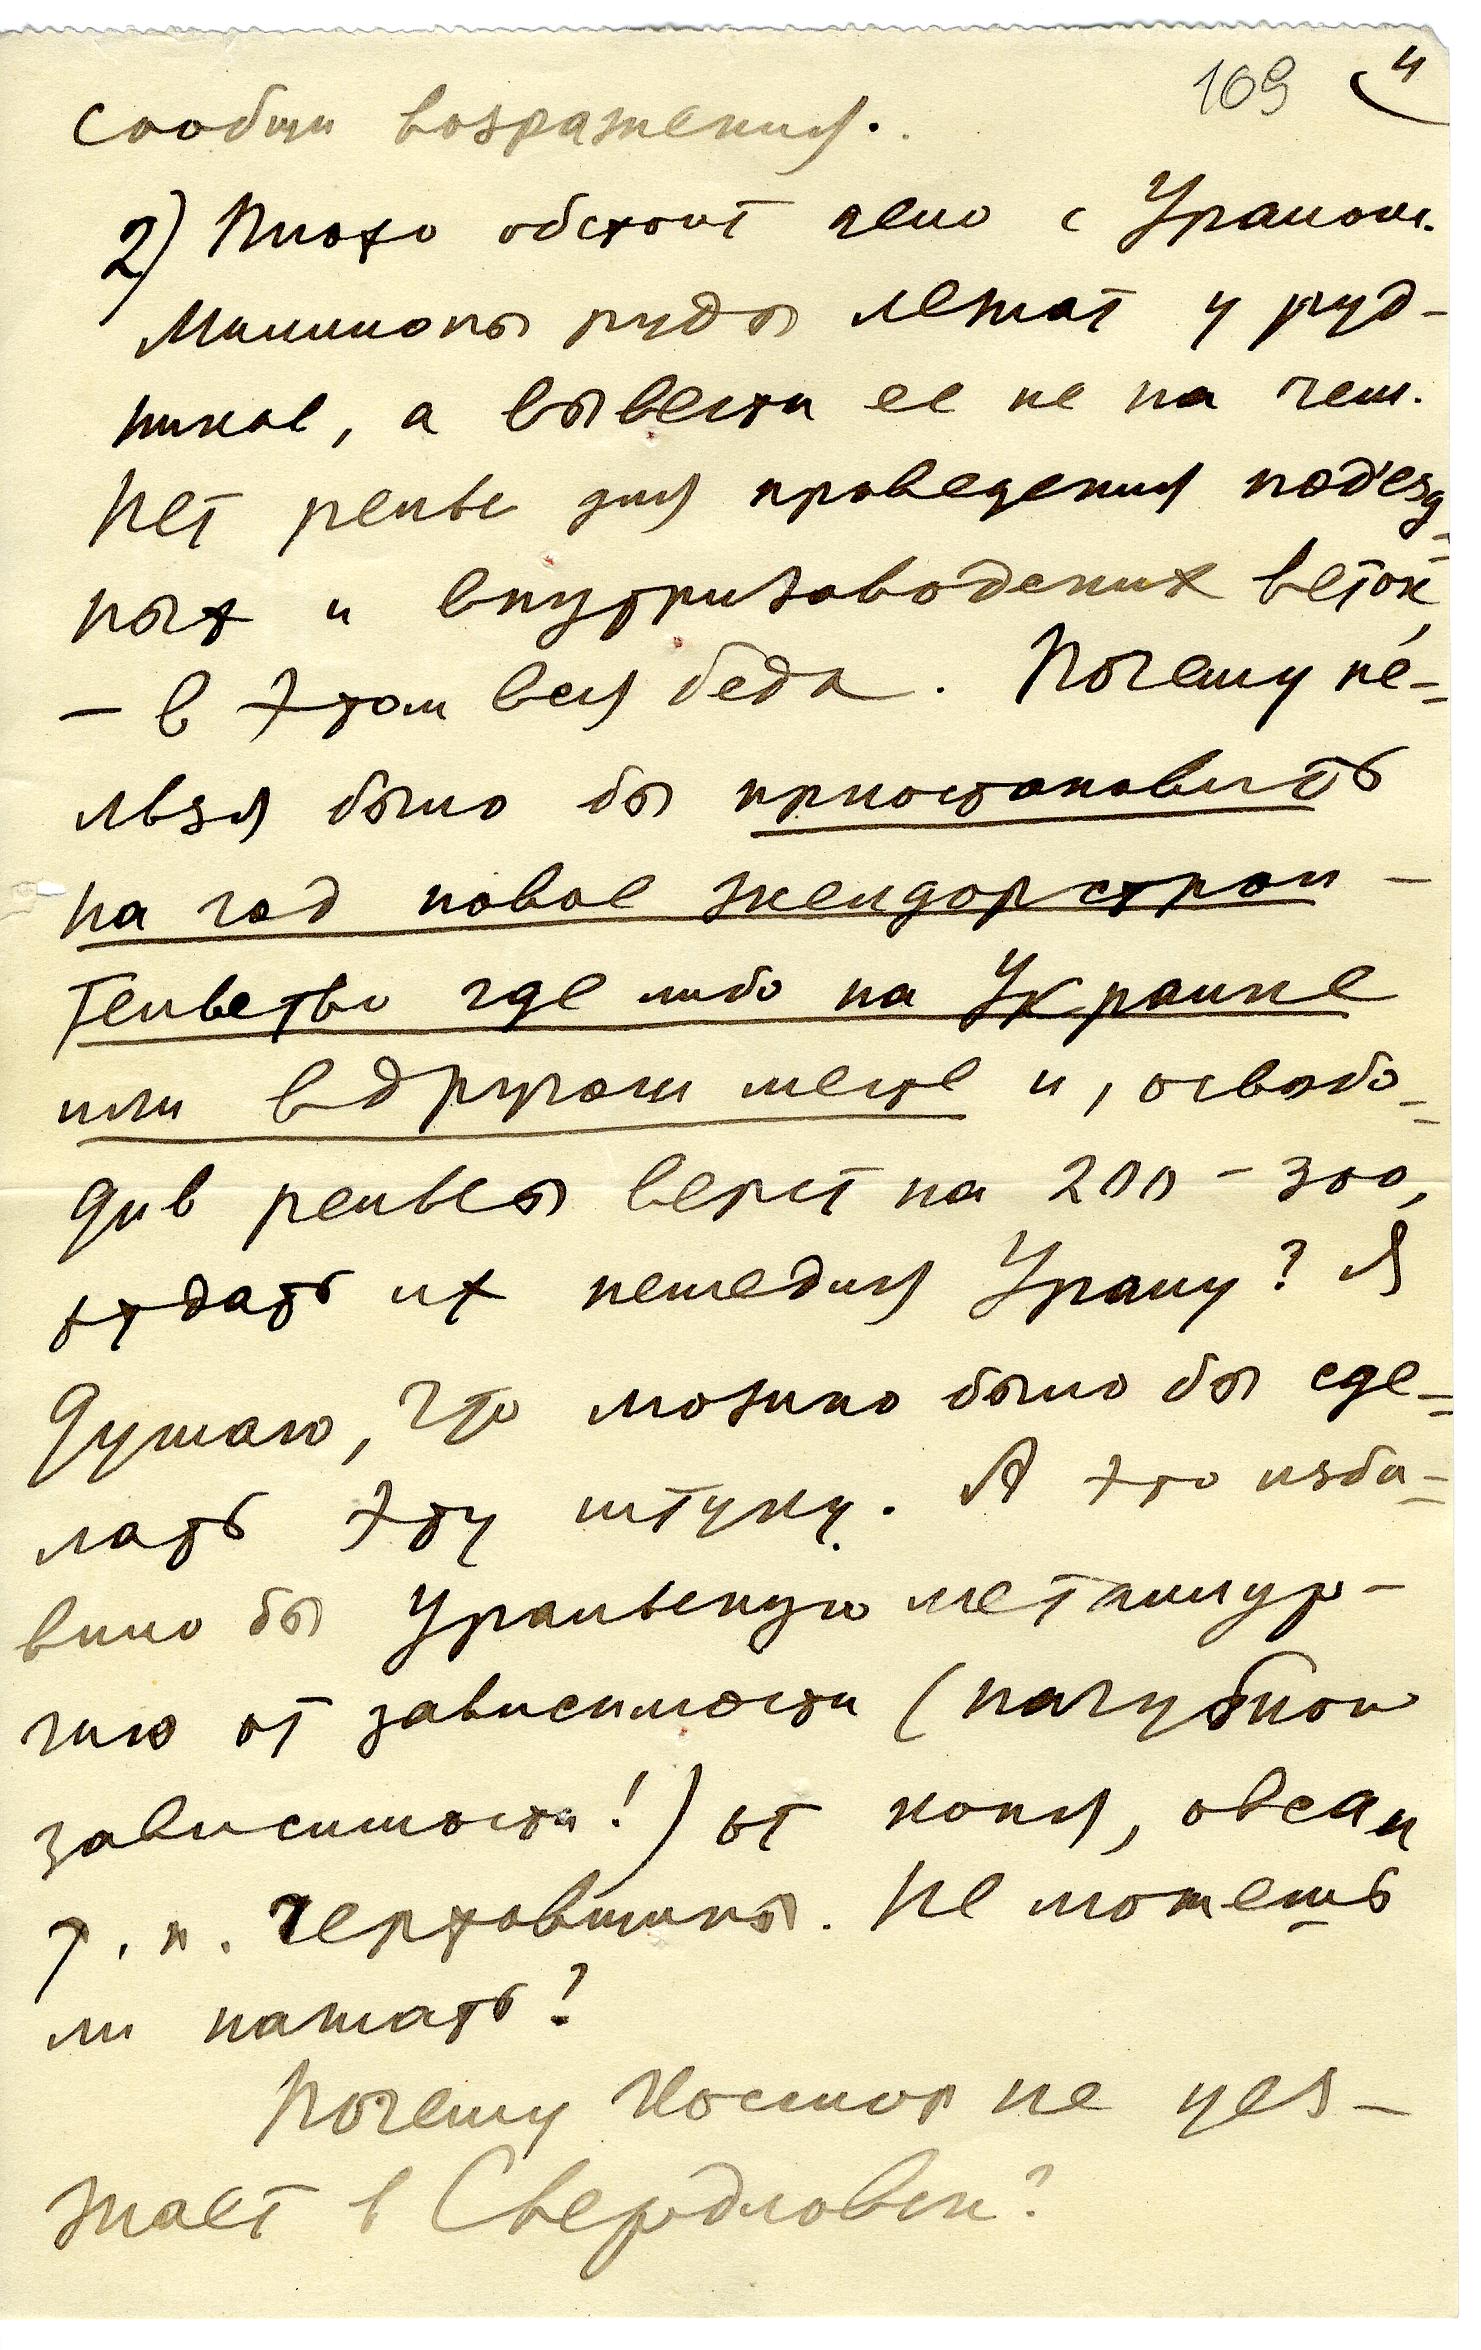 109 4
сообщи возражения.
2) Плохо обстоит дело с Уралом.
Миллионы руды лежат у руд-
ников, а вывезти ее не на чем.
Нет рельс для проведения под'езд-
ных и внутризаводских веток,
– в этом вся беда. Почему не-
льзя было бы приостановить
на год новое желдорстрои-
тельство где либо на Украине
или в другом месте и, освобо-
див рельсы верст на 200 – 300,
отдать их немедля Уралу? Я
думаю, что можно было бы сде-
лать эту штуку. А это изба-
вило бы Уральскую металлур-
гию от зависимости (пагубной
зависимости!) от коня, овса и
т. п. чертовщины. Не можешь
ли нажать?
Почему Носмор не уез-
жает в Свердловск?